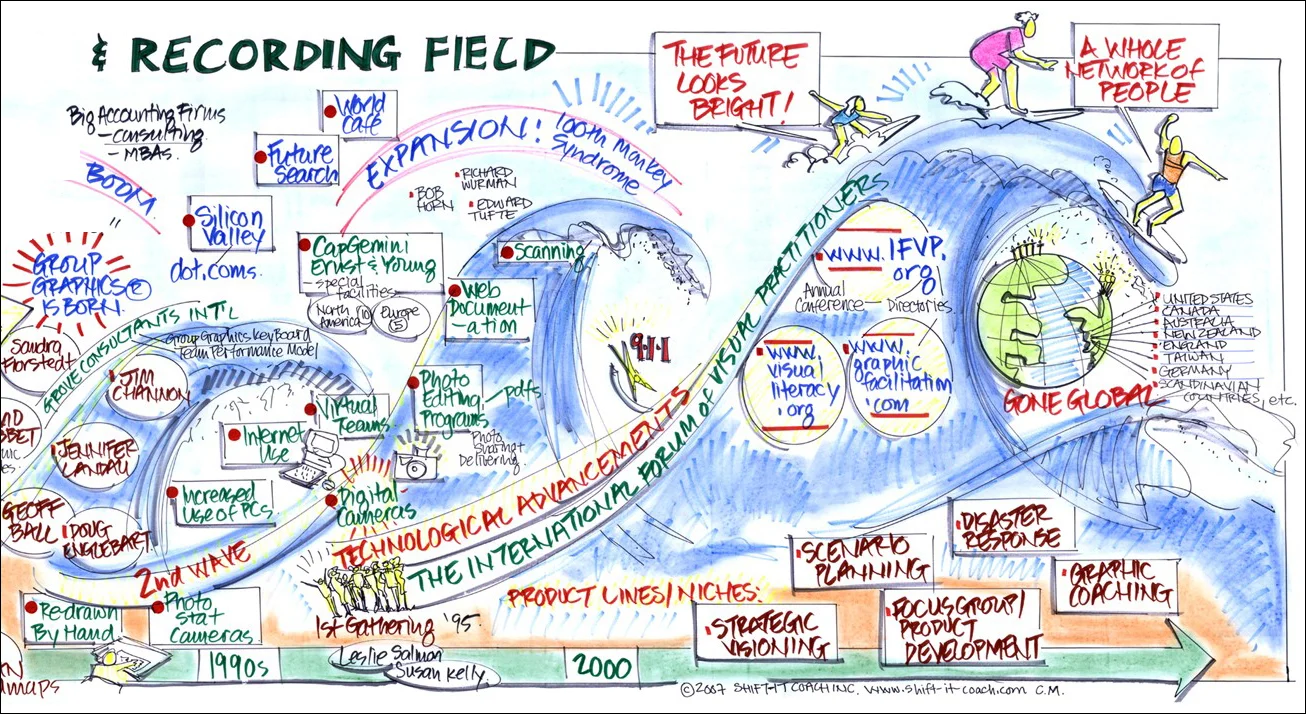 & RECORDING FIELD
Big Accounting Firms
- consulting
- MBAs.
BOOM
World
Café
Future
Search
Silicon
Valley
dot.coms.
EXPANSION!
100th Monkey
Syndrome
BOB
HORN
RICHARD
WURMAN
EDWARD
TUFTE
THE FUTURE
LOOKS
BRIGHT!
A WHOLE
NETWORK OF
PEOPLE
GROUP
GRAPHICS®
IS BORN.
GROVE CONSULTANTS INT'L
Group Graphics KeyBoard
Team Performance Model
CapGemini
Ernst & Young
- special
facilities
North
America
Europe
(5)
Scanning
Web
Document
-ation
Sandra
Florstedt
JIM
CHANNON
JENNIFER
LANDAU
GEOFF
BALL
DOUG
ENGLEBART
Virtual
Teams
Internet
Use
Increased
Use of PCs
Digital
Cameras
Photo
Editing
Programs
pdfs
Photo
Sharing &
Delivering
9-1-1
2nd WAVE
TECHNOLOGICAL ADVANCEMENTS
THE INTERNATIONAL FORUM of VISUAL PRACTITIONERS
www.IFVP.
org
Annual
Conference
Directories.
www.
visual
literacy
.org
www.
graphic
facilitation
.com
GONE GLOBAL
UNITED STATES
CANADA
AUSTRALIA
NEW ZEALAND
ENGLAND
TAIWAN
GERMANY
SCANDINAVIAN
COUNTRIES, etc.
Redrawn
By Hand
Photo
Stat
Cameras.
1st Gathering '95.
Leslie Salmon
Susan Kelly.
PRODUCT LINES/NICHES:
STRATEGIC
VISIONING
SCENARIO
PLANNING
FOCUS GROUP/
PRODUCT
DEVELOPMENT
DISASTER
RESPONSE
GRAPHIC
COACHING
1990s
2000
©2007 SHIFT-IT COACH INC. www.shift-it-coach.com C.M.